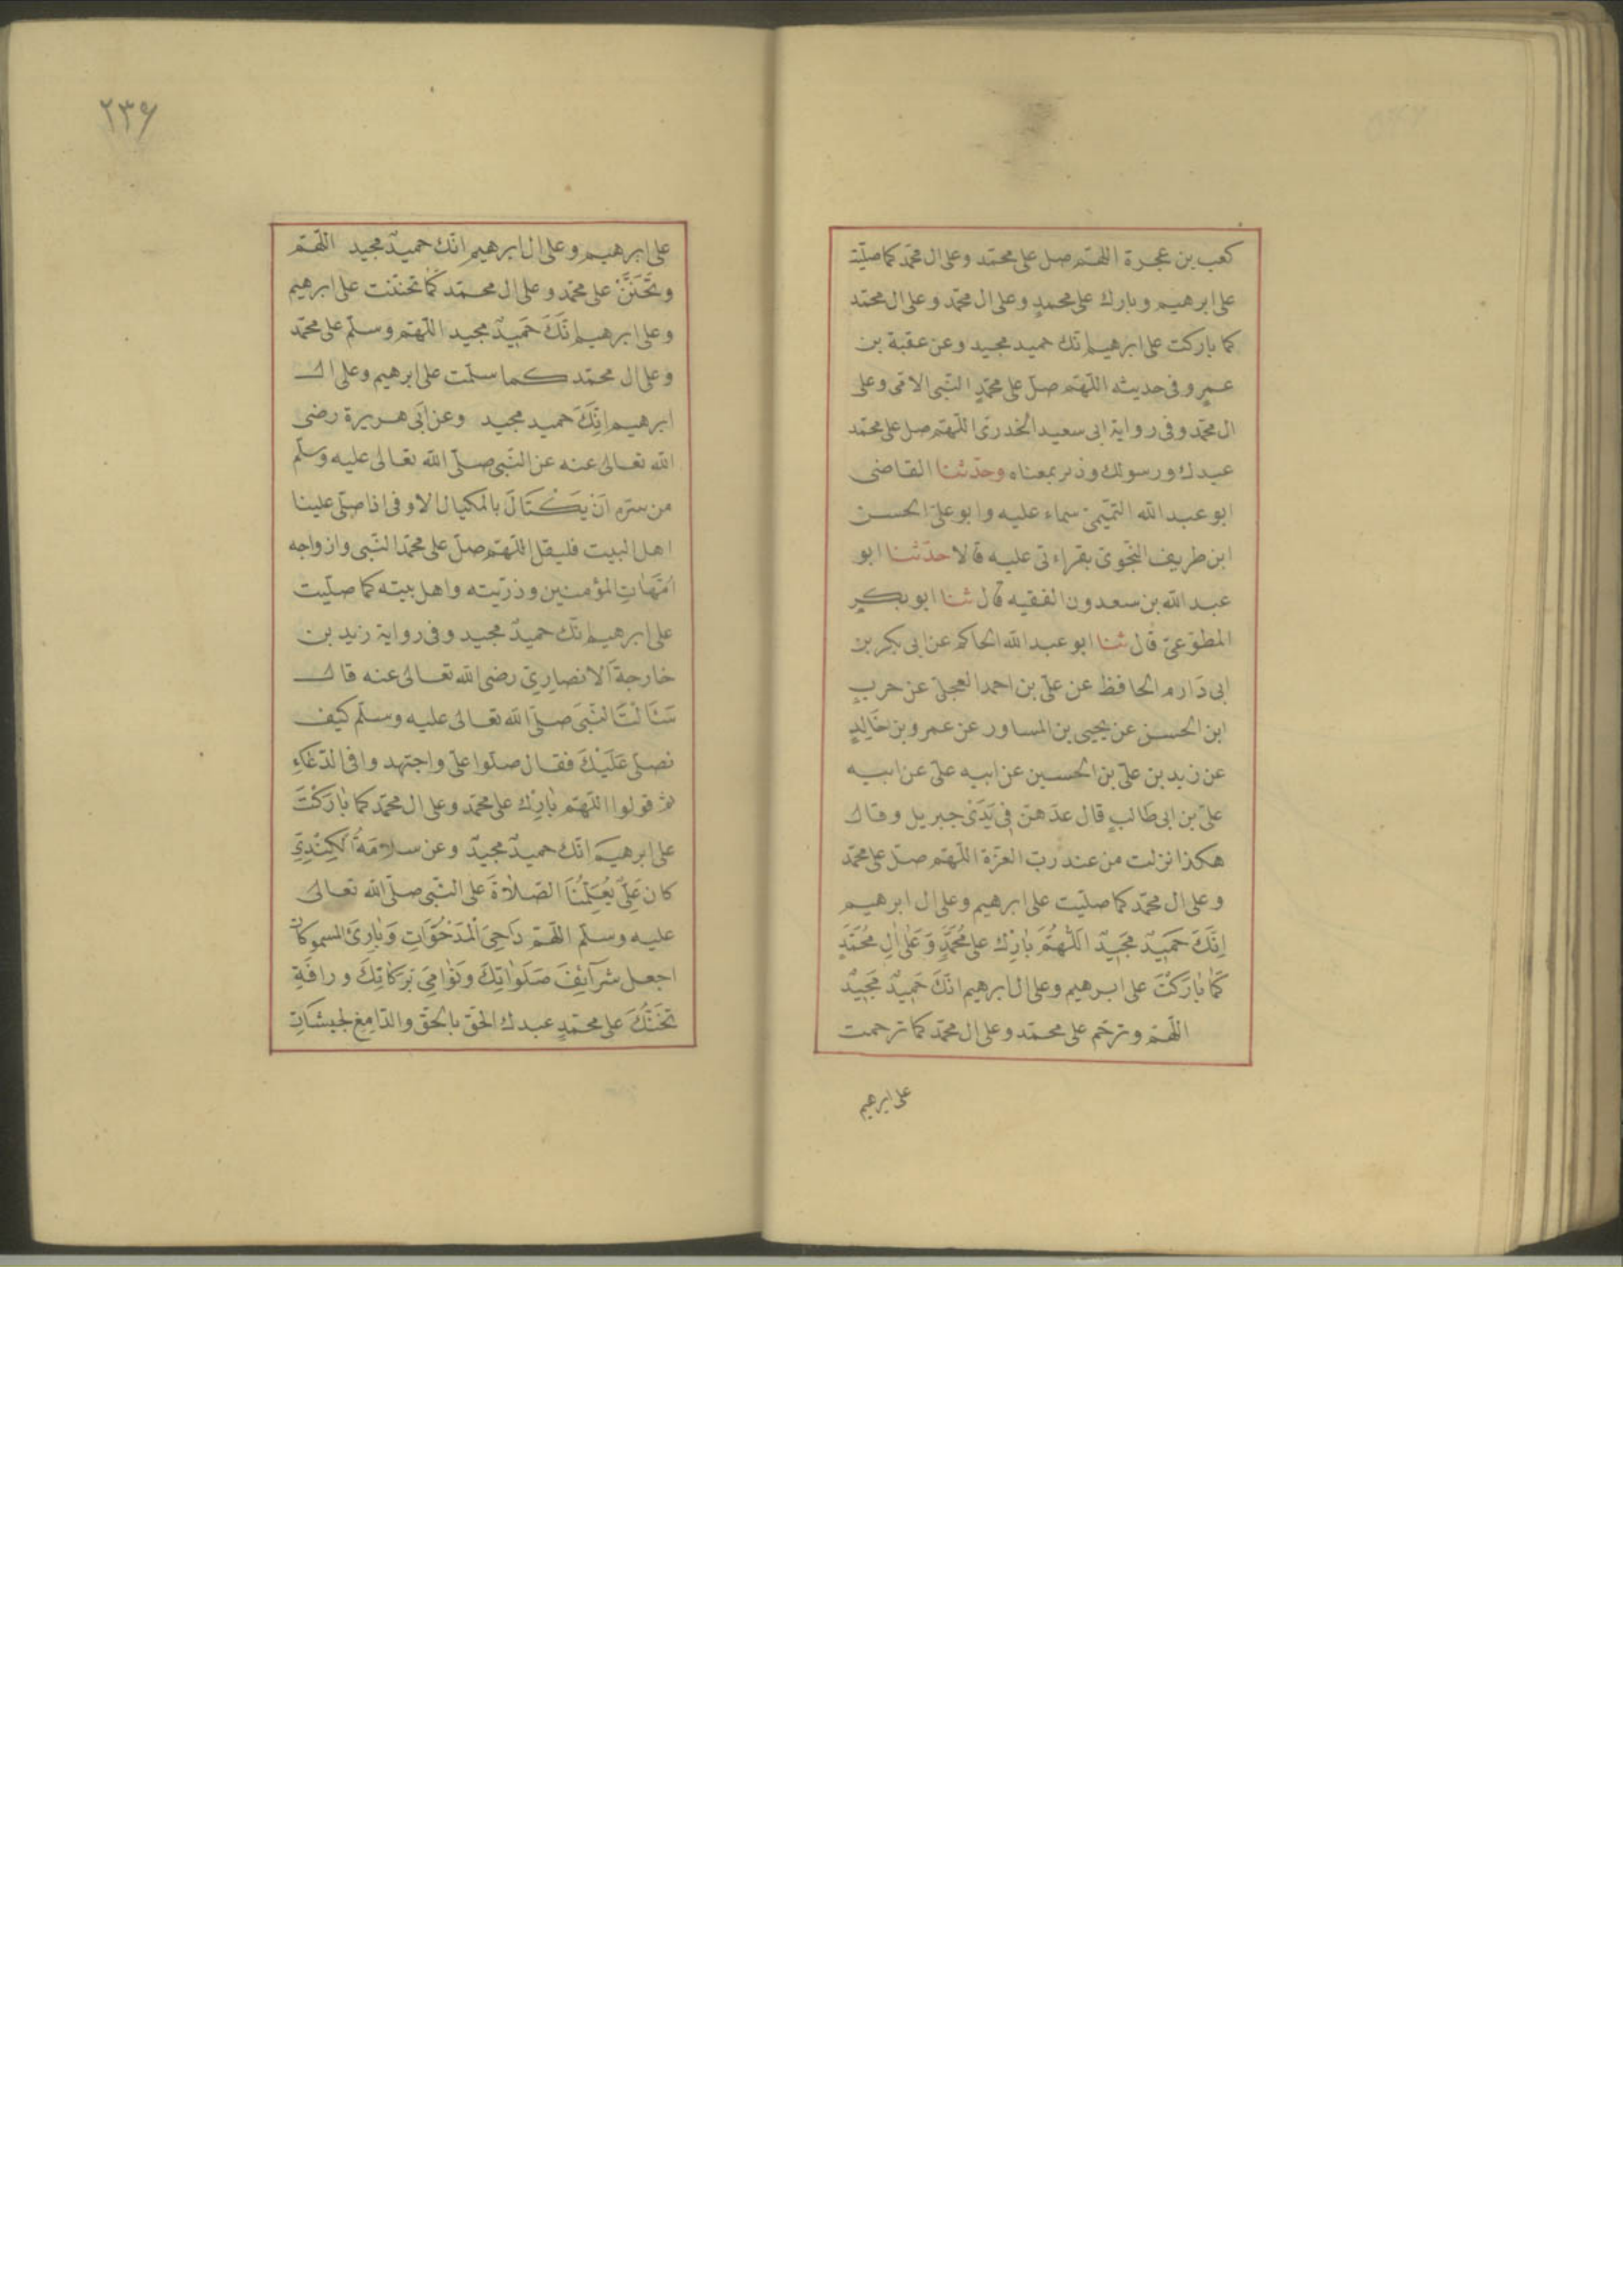 كعب بن عجرة اللهم صل على محمد وعلى ال محمد كما صليت
على ابرهيم وبارك على محمدٍ وعلى ال محمد وعلى ال محمد
كما باركت على ابرهيم انك حميد مجيد وعن عقبة بن
عمرٍو فى حديثه اللهم صلّ على محمدٍ النبى الامى وعلى
ال محمد وفى رواية ابى سعيد الخدرىّ اللهم صل على محمد
عبدك ورسولك وذكر بمعناه وحدّثنا القاضى
ابو عبد الله التميمىّ سماء عليه وابو علىّ الحسن
ابن طريف النحوىّ بقراءتى عليه قالا حدّثنا ابو
عبد الله بن سعدون الفقيه قال ثنا ابو بكرٍ
المطوّعىّ قال ثنا ابو عبد الله الحاكم عن ابى بكر بن
ابى دَارم الحافظ عن علىّ بن احمد العجلىّ عن حربِ
ابن الحسن عن يحيى بن المساور عن عمرو بن خَالِدٍ
عن زيد بن علىّ بن الحسين عن ابيه علىّ عن ابيه
علىّ بن ابى طالبٍ قال عدّهنّ فِى يَدَىَّ جبريل وقال
هكذا نزلت من عند ربّ العزّة اللّهمّ صلّ على محمّد
وعلى ال محمّد كما صلّيت على ابرهيم وعلى ال ابرهيم
اِنَّكَ حَمِيدٌ مَجِيدٌ اَللّٰهُمَّ بَارِك على مُحَمَّدٍ وَعَلٰى اٰلِ مُحَمَّدٍ
كَمَا بَارَكْتَ على ابرهيم وعلى ال ابرهيم انّكَ حَمِيدٌ مَجِيدٌ
اللّهمّ وترحّم على محمّد وعلى ال محمّد كما ترحمت
على ابرهيم
٢٣٦
على ابرهيم وعلى ال ابرهيم انّك حميدٌ مجيد اللّهمّ
وتَحَنَّنْ على محمّد وعلى ال محمّد كَمَا تحنّنت على ابرهيم
وعلى ابرهيم انّكَ حَمِيدٌ مجيد اللّهمّ وسلّم على محمّد
وعلى ال محمّد كما سلّمت على ابرهيم وعلى ال
ابرهيم اِنّكَ حميد مجيد وعن ابَى هريرة رضى
الله تعالى عنه عن النّبى صلّى الله تعالى عليه وسلّم
من سرّه اَنْ يَكْتَالَ بالمكيال الاوفى اذا صلّى علينا
اهل البيت فليقل اللّهمّ صلّ على محمّد النّبى وازواجه
اُمّهَاتِ المؤمنين وذرّيته واهل بيته كما صلّيت
على ابرهيم انّك حميدٌ مجيد وفى رواية زيد بن
خارجة اَلانصارِىّ رضى الله تعالى عنه قال
سَئَالتُ النّبىَ صلّى الله تعالى عليه وسلّم كيف
نصلّى عَلَيْكَ فقال صلّوا علىّ واجتهدوا فى الدّعَاءِ
ثمّ قولوا اللّهمّ بَارِك على محمّد وعلى ال محمّد كما بَارَكْتَ
على ابرهيمَ انّك حميدٌ مجيدٌ وعن سلامَةُ الكِنْدِىّ
كان عَلِىٌّ يُعَلِّمُنَا الصّلاةَ على النّبى صلّى الله تعالى
عليه وسلّم اللّهمّ دَاحِىَ الْمَدْحُوَّاتِ وَبَارِئَ المسموكات
اجعل شَرَآئِفَ صَلَوَاتِكَ وَنَوَامِىَ بَرَكَاتِكَ ورافَةِ
تَحَنُّنِكَ على محمّدٍ عبدك الحقّ بالحقّ والدّامِغ لجيشَاتِ